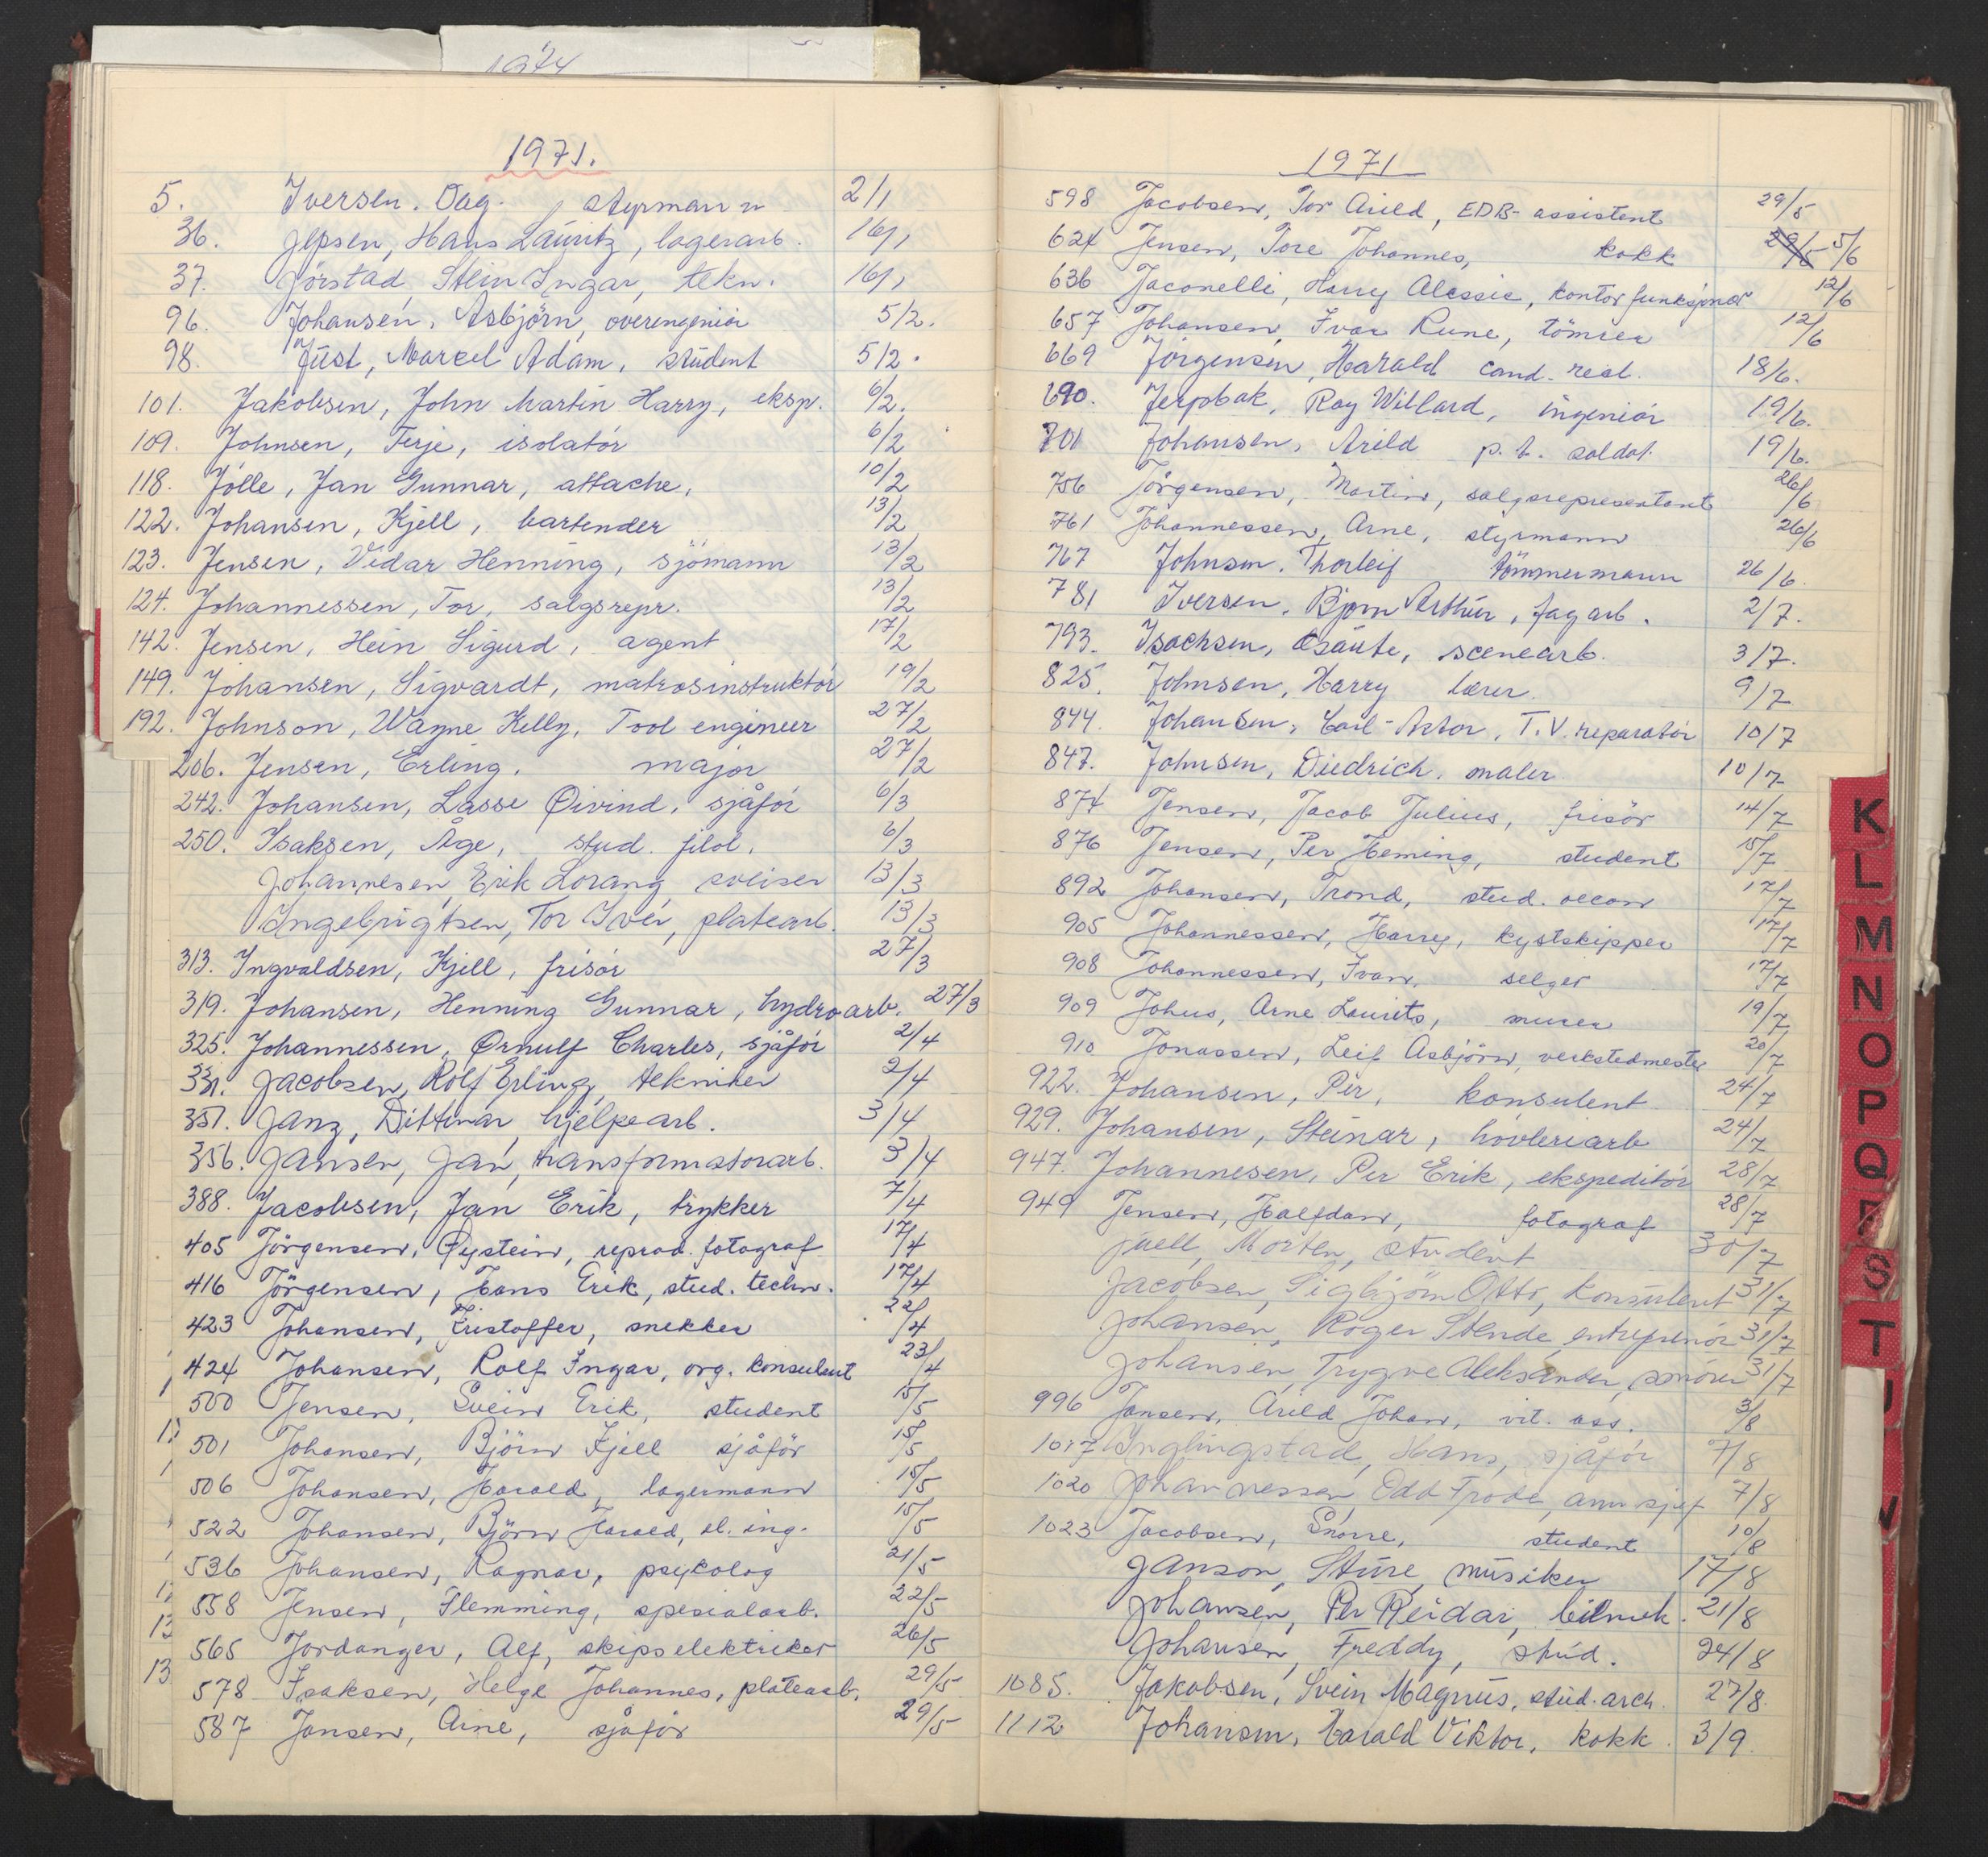 1974
1971.
5. Iversen. Dag. styrmann 2/1
36. Jepsen, Hans Lauritz, lagerarb. 16/1
37. Jörstad, Stein Ingar, tekn. 16/1
96. Johansen, Asbjörn, overingeniör 5/2.
98. Just, Marcel Adam, student 5/2.
101. Jakobsen, John Martin Harry, eksp. 6/2.
109. Johnsen, Terje, isolatör 6/2
118. Jölle, Jan Gunnar, attache, 10/2
122. Johansen, Kjell, bartender 13/2
123. Jensen, Vidar Henning, sjömann 13/2
124. Johannessen, Tor, salgsrepr. 13/2
142. Jensen, Hein Sigurd, agent 17/2
149. Johansen, Sigvardt, matrosinstruktör 19/2
192. Johnson, Wayne Kelly, Tool engineer 27/2
206. Jensen, Erling, major 27/2
242. Johansen, Lasse Øivind, sjåför 6/3
250. Isaksen, Åge, stud. filol. 6/3
Johannesen, Erik Lorang, sveiser 13/3
Ingebrigtsen, Tor Iver, platearb. 13/3
313. Ingvaldsen, Kjell, frisör 27/3
319. Johansen, Henning Gunnar, hydroarb. 27/3
325. Johannessen, Ørnulf Charles, sjåför 2/4
331. Jacobsen, Rolf Erling, tekniker 2/4
351. Janz, Dittmar, hjelpearb. 3/4
356. Jansen, Jan, transformatorarb. 3/4
388. Jacobsen, Jan Erik, trykker 7/4
405 Jörgensen, Øystein, reprod. fotograf 17/4
416 Jörgensen, Hans Erik, stud. techn. 17/4
423 Johansen, Kristoffer, snekker 22/4
424 Johansen, Rolf Ingar, org. konsulent 23/4
500 Jensen, Svein Erik, student 15/5
501 Johansen, Björn Kjell sjåför 15/5
506 Johansen, Harald, lagermann 15/5
522 Johansen, Björn Harald, el. ing. 15/5
536 Johansen, Ragnar, psykolog 21/5
558 Jensen, Flemming, spesialarb. 22/5
565 Jordanger, Alf, skipselektriker 26/5
578 Isaksen, Helge Johannes, platearb. 29/5
587 Jansen, Arne, sjåför 29/5
1971
598 Jacobsen, Tor Arild, EDB-assistent 29/5
624 Jensen, Tore Johannes, kokk 29/5 5/6
636 Jaconelli, Harry Alessie, kontorfunksjonær 12/6
657 Johansen, Ivar Rune, tömrer 12/6
669 Jörgensen, Harald cand. real. 18/6.
690. Jerpbak, Ray Willard, ingeniör 19/6.
701 Johansen, Arild p.t. soldat. 19/6.
756 Jörgensen, Martin, salgsrepresentant 26/6
761 Johannessen, Arne, styrmann 26/6
767 Johnsen. Thorleif tömmermann 26/6.
781 Iversen, Bjorn Arthur, fagarb. 2/7.
793. Isachsen, Gaute, scenearb. 3/7.
825. Johnsen, Harry lærer. 9/7
844. Johansen, Carl-Astor, T.V. reparatör 10/7
847. Johnsen, Diedrich, maler 10/7
874 Jensen, Jacob Julius, frisör 14/7
876 Jensen, Per Heming, student 15/7
892 Johansen, Trond, stud. oecon 17/7
905 Johannessen, Harry, kystskipper 17/7
908 Johannessen, Ivar, selger 17/7
909 Johus, Arne Laurits, murer 19/7
910 Jonassen, Leif Asbjörn, verkstedmester 20/7
922. Johansen, Per, konsulent 24/7
929. Johansen, Steinar, hövleriarb 24/7
947. Johannesen, Per Erik, ekspeditör 28/7
949 Jensen, Halfdan, fotograf 28/7
Juell, Morten, student 30/7
Jacobsen, Sigbjörn Otto, konsulent 31/7
Johansen, Roger Stende, entreprenör 31/7
Johansen, Trygve Aleksander, 31/7
996 Jansen, Arild Johan, vit. ass. 3/8
1017 Inglingstad, Hans, sjåför 7/8
1020 Johannessen Odd Frode, ann.sjef 7/8
1023 Jacobsen, Snorre, student 10/8
Janson, Sture, musiker 17/8
Johansen, Per Reidar, bilmek. 21/8
Johansen, Freddy, stud. 24/8
1085. Jakobsen, Svein Magnus, stud. arch. 27/8.
1112 Johansen, Harald Viktor, kokk. 3/9.
K
L
M
N
O
P
Q
R
S
T